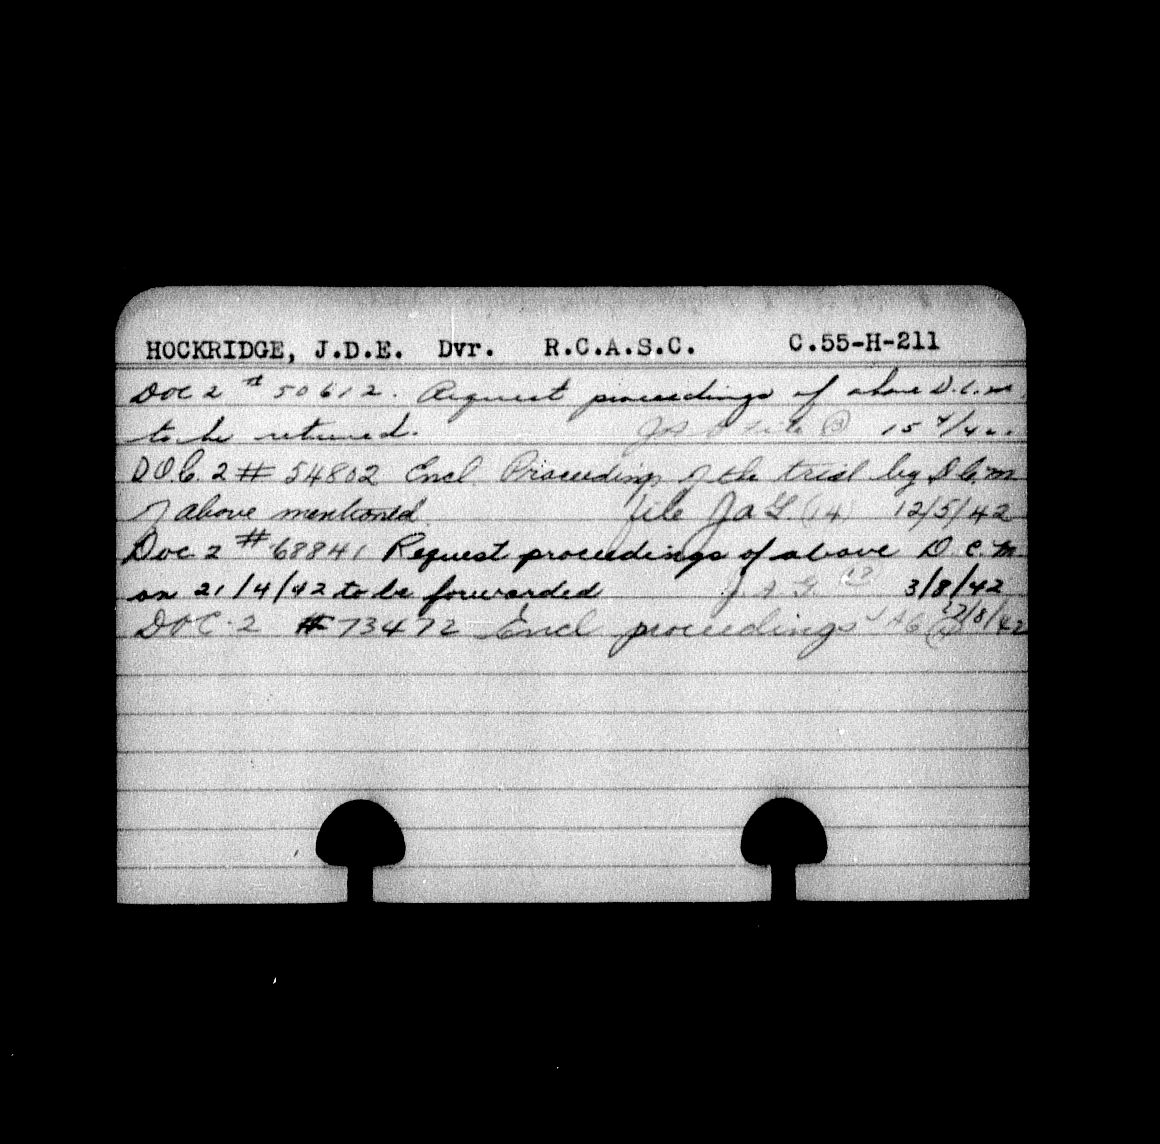 HOCKRIDGE, J.D.E. Dvr. R.C.A.S.C. C.55-H-211
DOC 2 # 50612. Request proceedings of above D.C.M
to be returned. 15/4/42.
D.O.C. 2 # 54802 Encl Proceedings of the trial by D.C.M
of above mentioned file JaG. (14) 12/5/42
Doc 2 # 68841 Request proceedings of above D.C.M
on 21/4/42 to be forwarded J.A.G. 3/8/42
DOC. 2 # 73472 Encl proceedings JAG /8/42